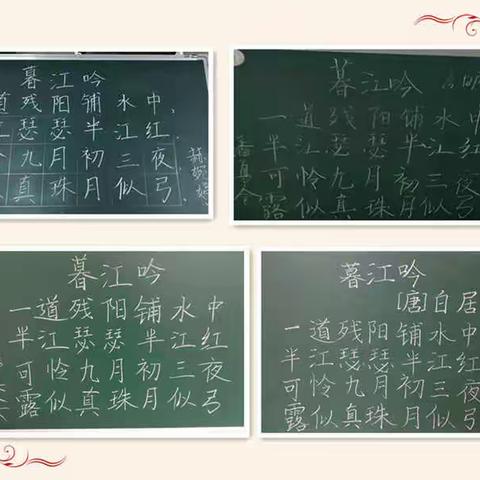 暮江吟
道残阳铺水中,
江瑟瑟半江红
九月初三夜
真珠月似弓
暮江吟
一道残阳铺水中
半江瑟瑟半江红
可怜九月初三夜
露似真珠月似弓
暮江吟
一道残阳铺水中
半江瑟瑟半江红
可怜九月初三夜
露似真珠月似弓
暮江吟
[唐]白居
一道残阳铺水中
半江瑟瑟半江红
可怜九月初三夜
露似真珠月似弓